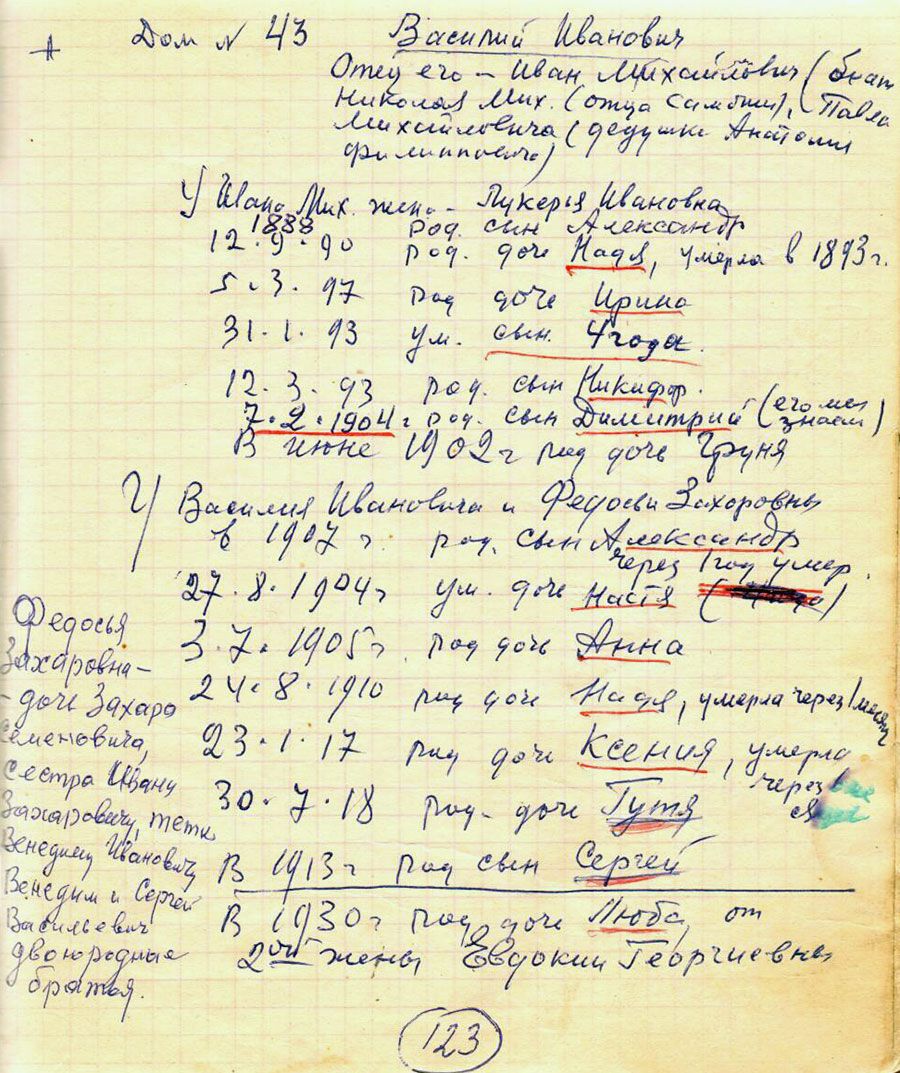 Дом № 43 Василий Иванович
Отец его – Иван Михайлович (брат
Николая Мих. (отца), Павла
Михайловича (дедушки Анатолия
Филипповича)
У Ивана Мих. жена – Лукерья Ивановна
1888 род. сын Александр
12.9.90 род. доче Надя, умерла в 1893 г.
5.3.97 род доче Ирина
31.1.93 ум. сын. 4 года.
12.3.93 род. сын Никифор.
7.2.1904 г. род. сын Димитрий (его мы знаем)
В июне 1902 г род доче Груня
У Василия Ивановича и Федосьи Захаровны
в 1907 г. род. сын Александр
через 1 год умер.
27.8.1904 г ум. доче Настя
3.7.1905 г. род доче Анна
24.8.1910 род доче Надя, умерла через 1 месяц
23.1.17 род доче Ксения, умерла
через
30.7.18 род. доче Тутя
В 1913 г род сын Сергей
В 1930 г род доче Люба, от
2ой жены Евдокии Георгиевны
Федосья
Захаровна –
– доче Захара
Семеновича,
сестра Ивану
Захаровичу, тетка
Венедиму Ивановичу
Венедим и Сергей
Васильевич
двоюродные
братья.
123